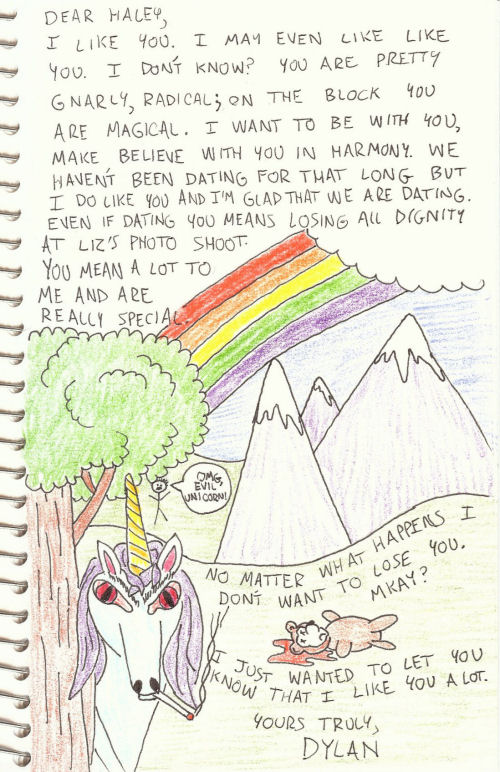 DEAR HALEY,
I LIKE YOU. I MAY EVEN LIKE LIKE
YOU. I DON'T KNOW? YOU ARE PRETTY
GNARLY, RADICAL; ON THE BLOCK YOU
ARE MAGICAL. I WANT TO BE WITH YOU,
MAKE BELIEVE WITH YOU IN HARMONY. WE
HAVENT BEEN DATING FOR THAT LONG BUT
I DO LIKE YOU AND I'M GLAD THAT WE ARE DATING.
EVEN IF DATING YOU MEANS LOSING ALL DIGNITY
AT LIZ'S PHOTO SHOOT.
YOU MEAN A LOT TO
ME AND ARE
REALLY SPECIAL
OMG,
EVIL
UNICORN!
NO MATTER WHAT HAPPENS I
DON'T WANT TO LOSE YOU.
MKAY?
I JUST WANTED TO LET YOU
KNOW THAT I LIKE YOU A LOT.
YOURS TRULY,
DYLAN